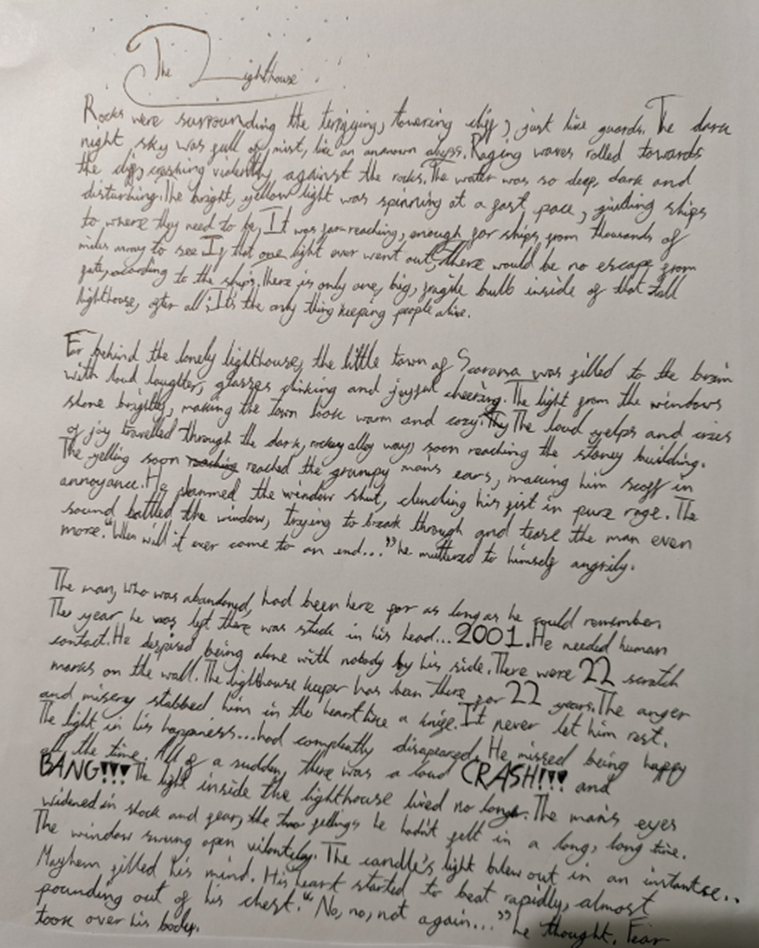 The Lighthouse
Rocks were surrounding the terrifying, towering cliff, just like guards. The dark
night sky was full of mist, like an unknown abyss. Raging waves rolled towards
the cliff, crashing violently against the rocks. The water was so deep, dark and
disturbing. The bright, yellow light was spinning at a fast pace, guiding ships
to where they need to be. It was far reaching, enough for ships from thousands of
miles away to see. If that one light ever went out, there would be no escape from
fate, according to the ships. There is only one, big, fragile bulb inside of that tall
lighthouse, after all; It's the only thing keeping people alive.
Far behind the lonely lighthouse, the little town of was filled to the brim
with loud laughter, glasses clinking and joyful cheering. The light from the windows
shone brightly, making the town look warm and cozy. The loud yelps and cries
of joy travelled through the dark, rockey alley ways soon reaching the stoney building.
The yelling soon reached the grumpy man's ears, making him scoff in
annoyance. He slammed the window shut, clenching his fist in pure rage. The
sound battled the window, trying to break through and tease the man even
more. "When will it ever come to an end..." he muttered to himself angrily.
The man, who was abandoned, had been here for as long as he could remember.
The year he was left there was stuck in his head... 2001. He needed human
contact. He despised being alone with nobody by his side. There were 22 scratch
marks on the wall. The lighthouse keeper has been there for 22 years. The anger
and misery stabbed him in the heart like a knife. It never let him rest.
The light in his happiness...had completly disapeared. He missed being happy
all the time. All of a sudden, there was a loud CRASH!!! and
BANG!!! The light inside the lighthouse lived no longer. The man's eyes
widened in shock and fear, the two fellings he hadn't felt in a long, long time.
The window swung open vilontely. The candle's light blew out in an instantse..
Mayhem filled his mind. His heart started to beat rapidly, almost
pounding out of his chest. "No, no, not again..." he thought. Fear
took over his body.